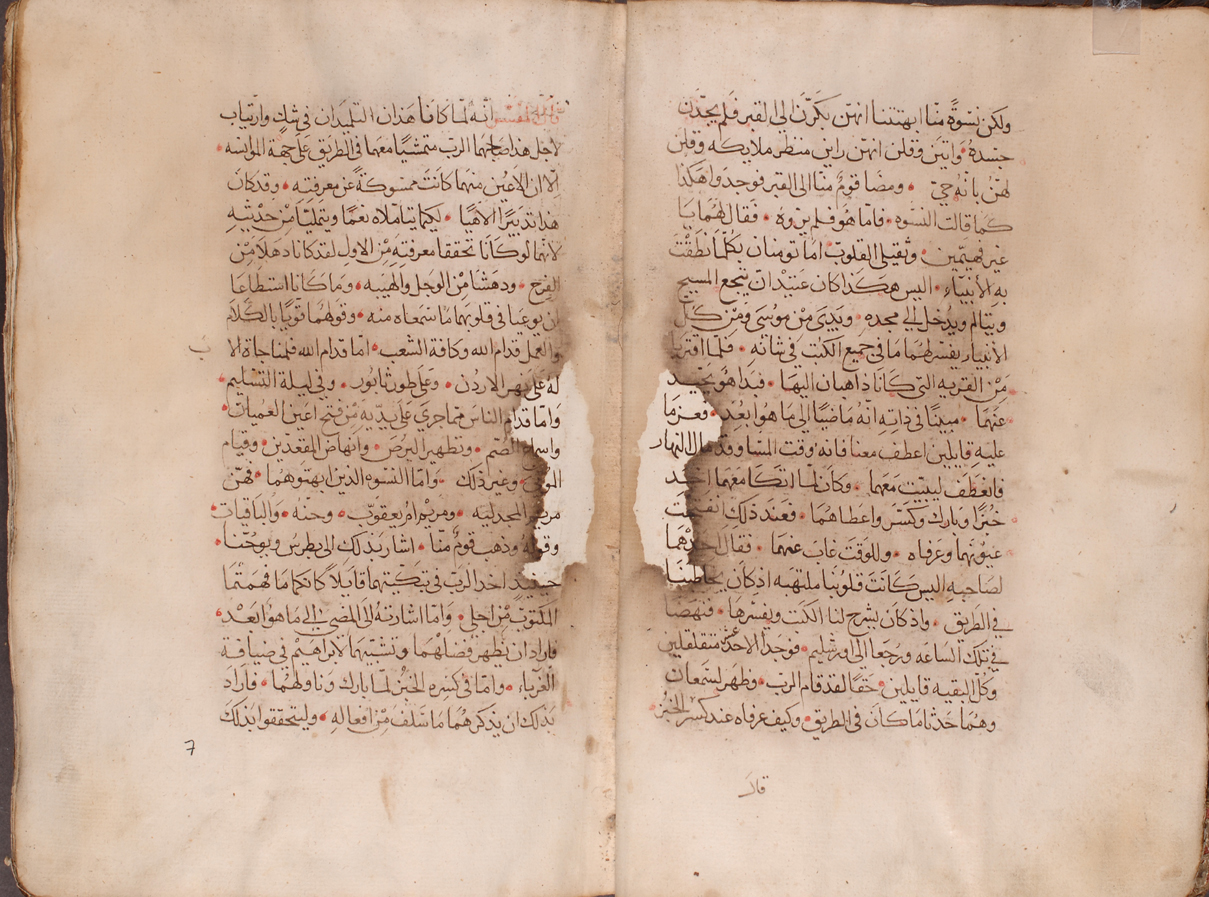 ولكن نسوةً منّا ابهتننا انهن بكّرن الي القبر فلم يجدن
جسده • واتين وقلن انهن راين منظر ملايكه وقلن
لهن بانه حيّ • ومضا قومٌ منّا الى القبر فوجدوا هكذا
كما قالت النسوه • فاما هو فلم يروه • فقال لهما يا
غير فهيمين • وثقيلي القلوب اما تومنان بكلما نطقت
به الأنبياء • اليس هكذا كان عتيدان يتجع المسيح
ويتالم ويدخل الي مجده • وبدى من موسي ومن كل
الأنبياء يفسر لهما ما في جميع الكتب في شانه • فلما اقتربا
من القريه التي كانا ذاهبان اليها • فبدا هو يحيد
عنهما • مبينًا في ذاته انه ماضيًا الي ما هوا بعد • فعزما
عليه قايلين اعطف معنا فانه وقت المسا وقد مال النهار
فانعطف ليبيت معهما • وكان لما اتكا معهما اخد
خبزًا وبارك وكسر واعطاهما • فعند ذلك انفتحت
عيونهما وعرفاه • وللوقت غاب عنهما • فقال احدهما
لصاحبه اليس كانت قلوبنا ملتهبه اذ كان يخاطبنا
في الطريق • واذ كان يشرح لنا الكتب ويفسرها • فنهضا
في تلك الساعه ورجعا الى اورشليم • فوجدا الاحد عشر متقلقلين
وكل البقيه قايلين • حقًا لقد قام الرب • وظهر لسمعان
وهما حدثا ما كان في الطريق • وكيف عرفاه عند كسر الخبز
قلا
المفسر انه لما كانا هذان التلميذان في شك وارتياب
لاجل هذا صاحبهما الرب متمشيًا معهما في الطريق على جهة الموانسه •
الا ان الاعين منهما كانت ممسوكةً عن معرفته • وقد كان
هذا تدبيرًا الاهيًا • لكيما يتاملاه نعمًا ويتمليا من حديثه
لانهما لو كانا تحققا معرفته من الاول لقد كانا ذهلا من
الفرح • ودهشا من الوجل والهيبه • وما كانا استطاعا
ان يوعيا في قلوبهما ما سمعاه منه • وقولهما قويًا بالكلام
والعمل قدام الله وكافة الشعب • اما قدام الله فلمناجاة الا
ب
له على نهر الاردن • وعلى طور ثابور • وفي ليلة التسليم •
واما قدام الناس فما جري على يديه من فتح اعين العميان •
الصم • وتطهير البرص • وانهاض المقعدين • وقيام
وغير ذلك • واما النسوه الذين ابهتوهما • فهن
مريم المجدليه • ومريم ام يعقوب • وحنه • والباقيات •
وذهب قومٌ منّا • اشار بذلك الي بطرس ويوحنّا •
حينيد اخذ الرب في تبكيتهما قايلًا كانكما ما فهمتما
المكتوب من اجلي • واما اشارته الى المضي الي ما هوا بعد •
فاراد ان يظهر فضلهما وتشبيهما لابراهيم في ضيافة
الغربا • واما في كسره الخبز لما بارك وناولهما • فاراد
بذلك ان يذكرهما ما سلف من افعاله • وليتحققوا بذلك
7